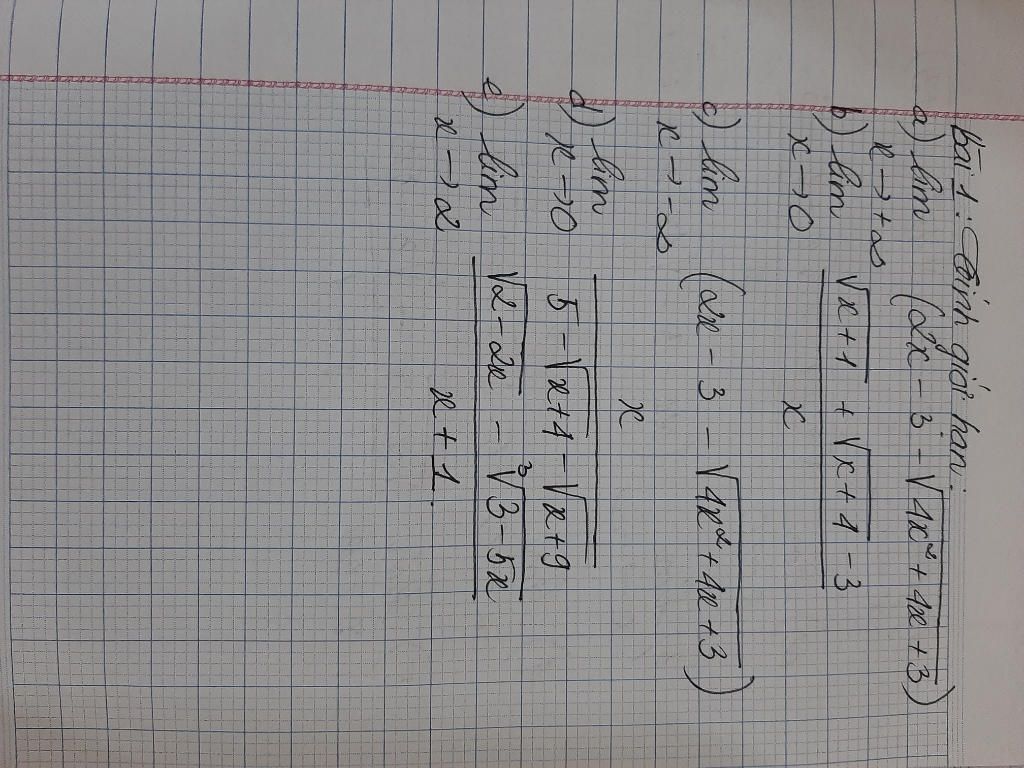 Bài 1: Tính giới hạn:
a) lim (2x - 3 - √(4x² + 4x + 3))
x → +∞
b) lim (√(x+1) + √(x+4) - 3) / x
x → 0
c) lim (2x - 3 - √(4x² + 4x + 3))
x → -∞
d) lim (5 - √(x+4) - √(x+9)) / x
x → 0
e) lim (√(2-2x) - ³√(3-5x)) / (x + 1)
x → 2